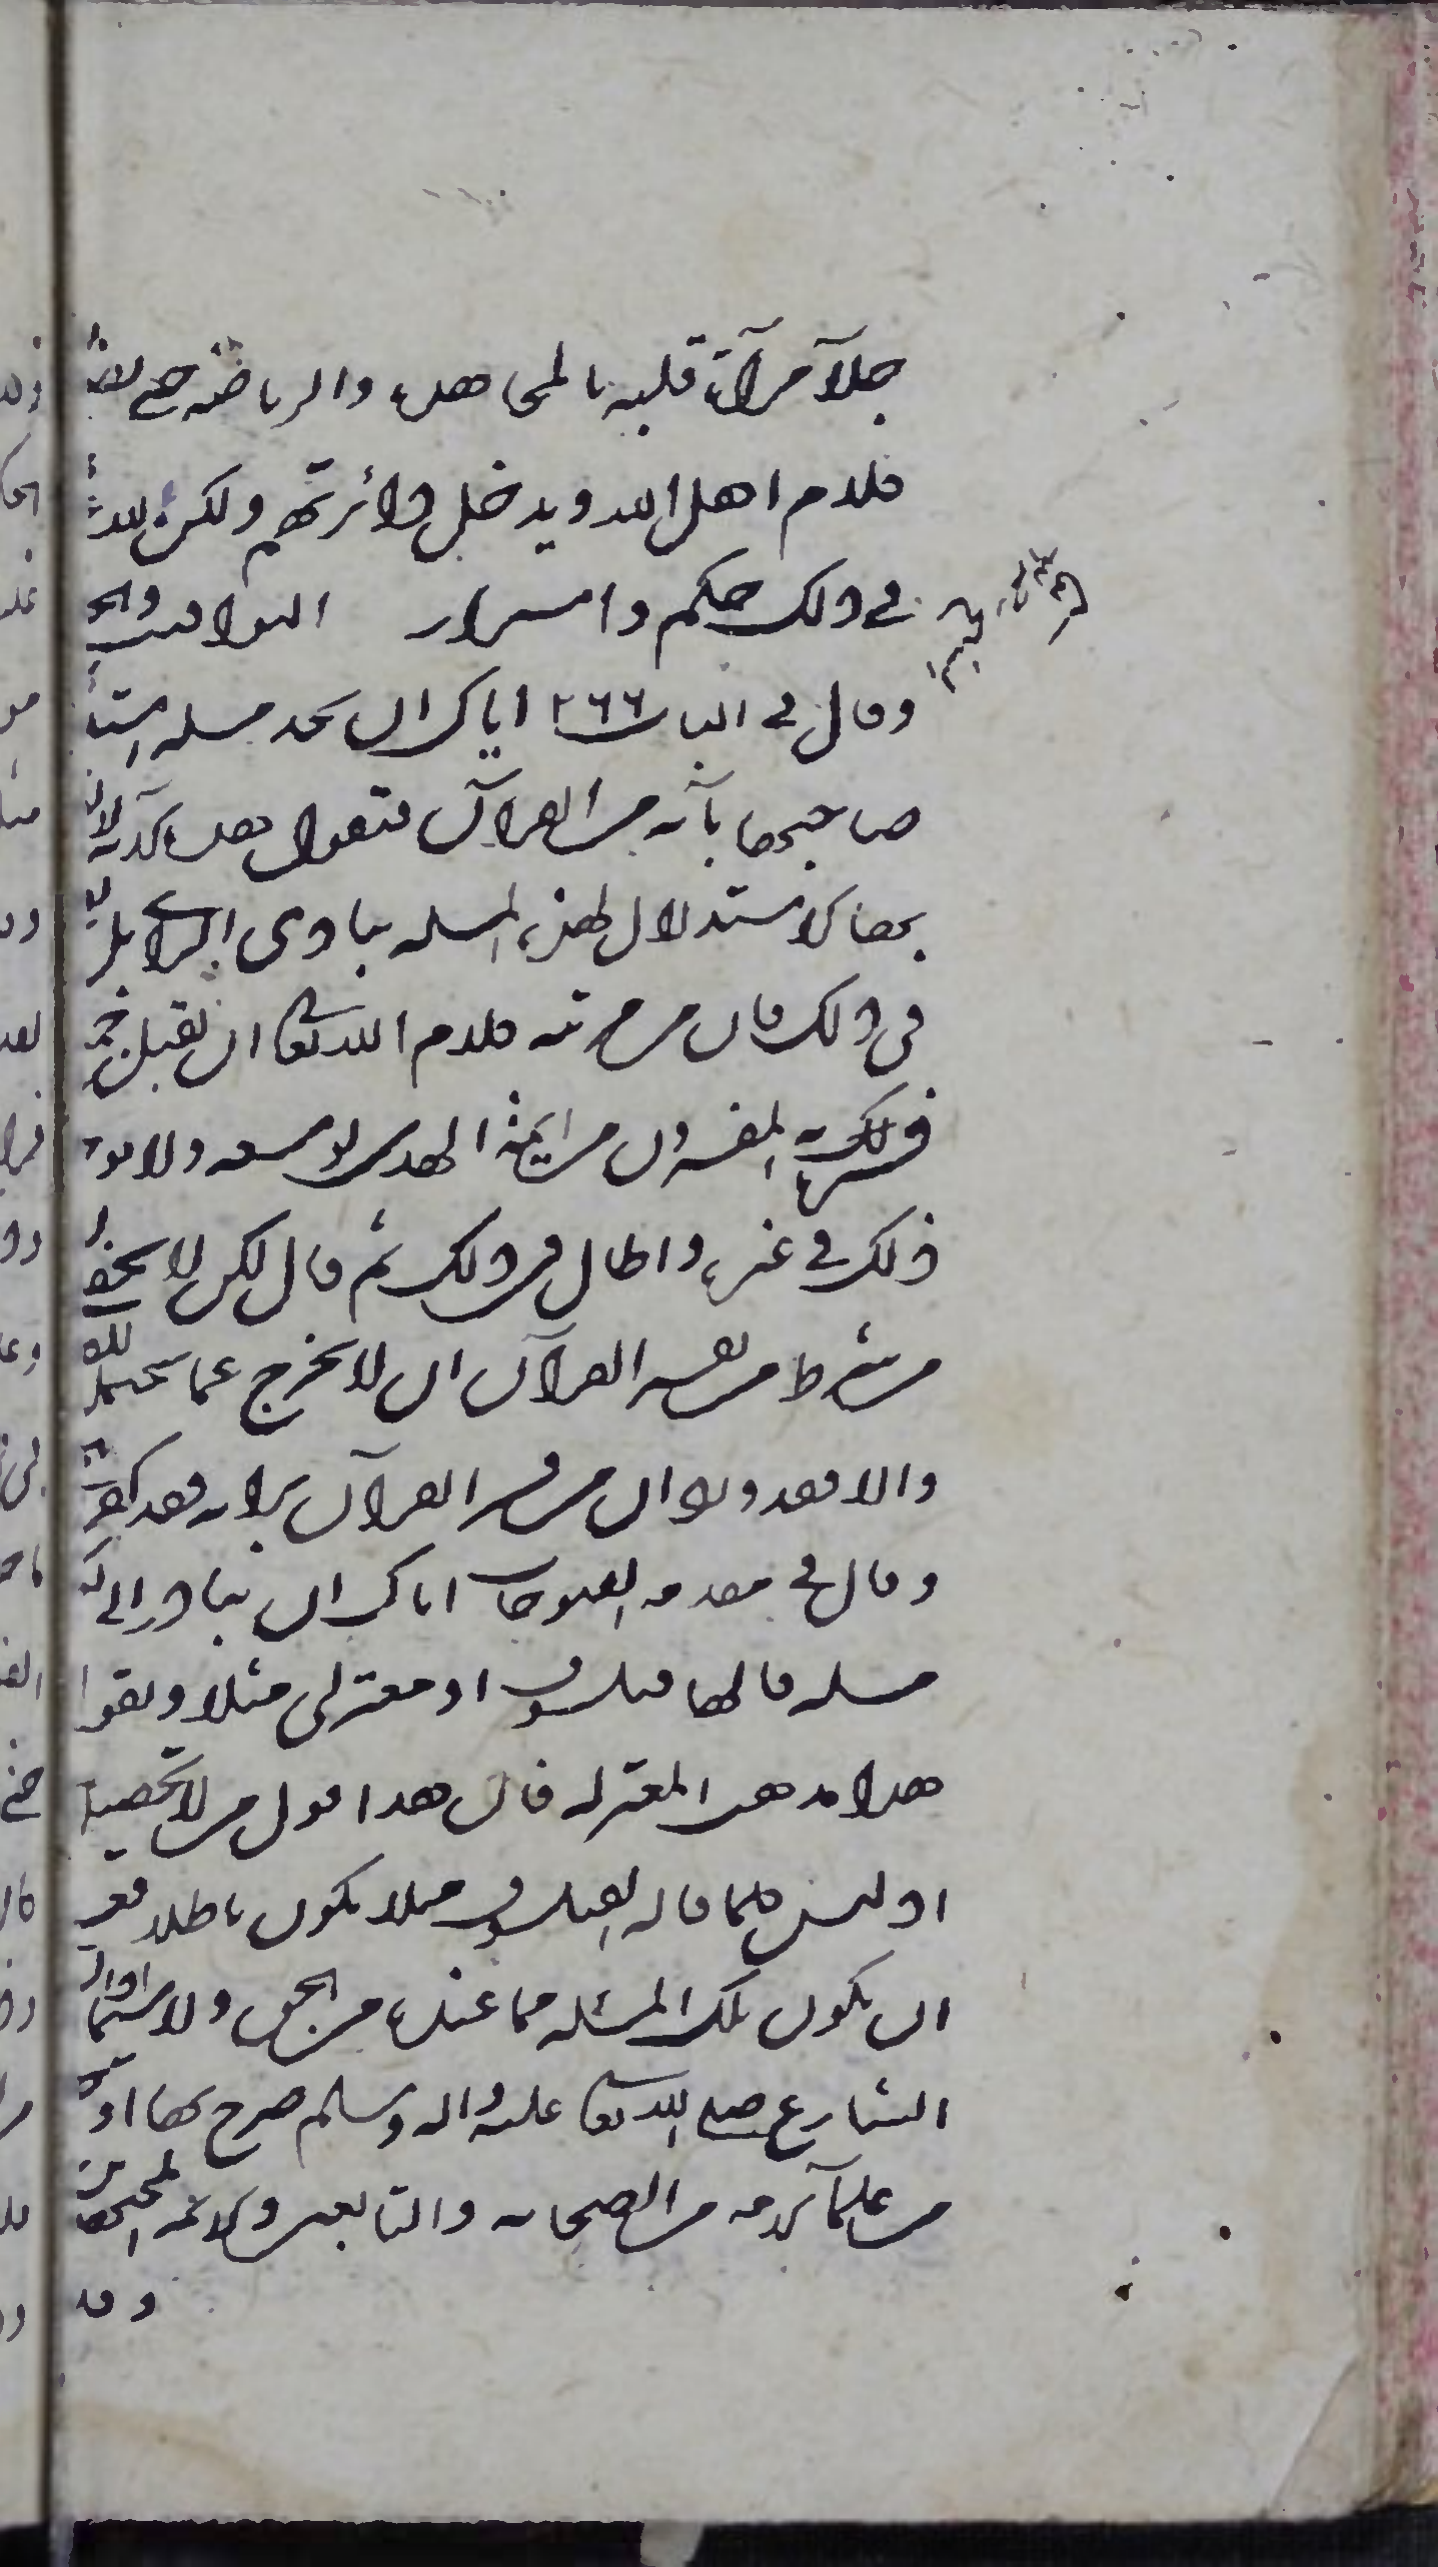 جلآ مرآة قلبه بالمجاهدة والرياضة حتى يفهم
كلام اهل الله ويدخل دائرتهم ولكن لله
في ذلك حكم واسرار اليواقيت والجو
وقال في الباب ٢٦٦ اياك ان تجد مسئله استدل
صاحبها بآية من القرآن فتقول هذه الآية لا
بها كلاستدلال لهذه المسئله بل
في ذلك فان مرتبة كلام الله تعالى ان يقبل جميع
ما فسره به المفسرون من ايمة الهدى لوسعه ولا يوجد
ذلك في غيره واطال في ذلك ثم قال لكن لا يخفى ان
من شرط من يفسر القرآن ان لا يخرج عما يحتمله اللفظ
والا فقد ورد ان من فسر القرآن برايه فقد كفر
وقال في مقدمه الفتوحات اياك ان تبادر الى
مسئله قالها فيلسوف او معتزلي مثلا وتقول
هذا مذهب المعتزله فان هذا قول من لا تحصيل له
اذ ليس كلما قاله الفيلسوف مثلا يكون باطلا فعسى
ان تكون تلك المسئله مما عنده من الحق ولا سيما ان وجدنا
الشارع صلى الله تعالى عليه واله وسلم صرح بها او
من علمآء امته من الصحابه والتابعين والائمه المجتهدين
وقد